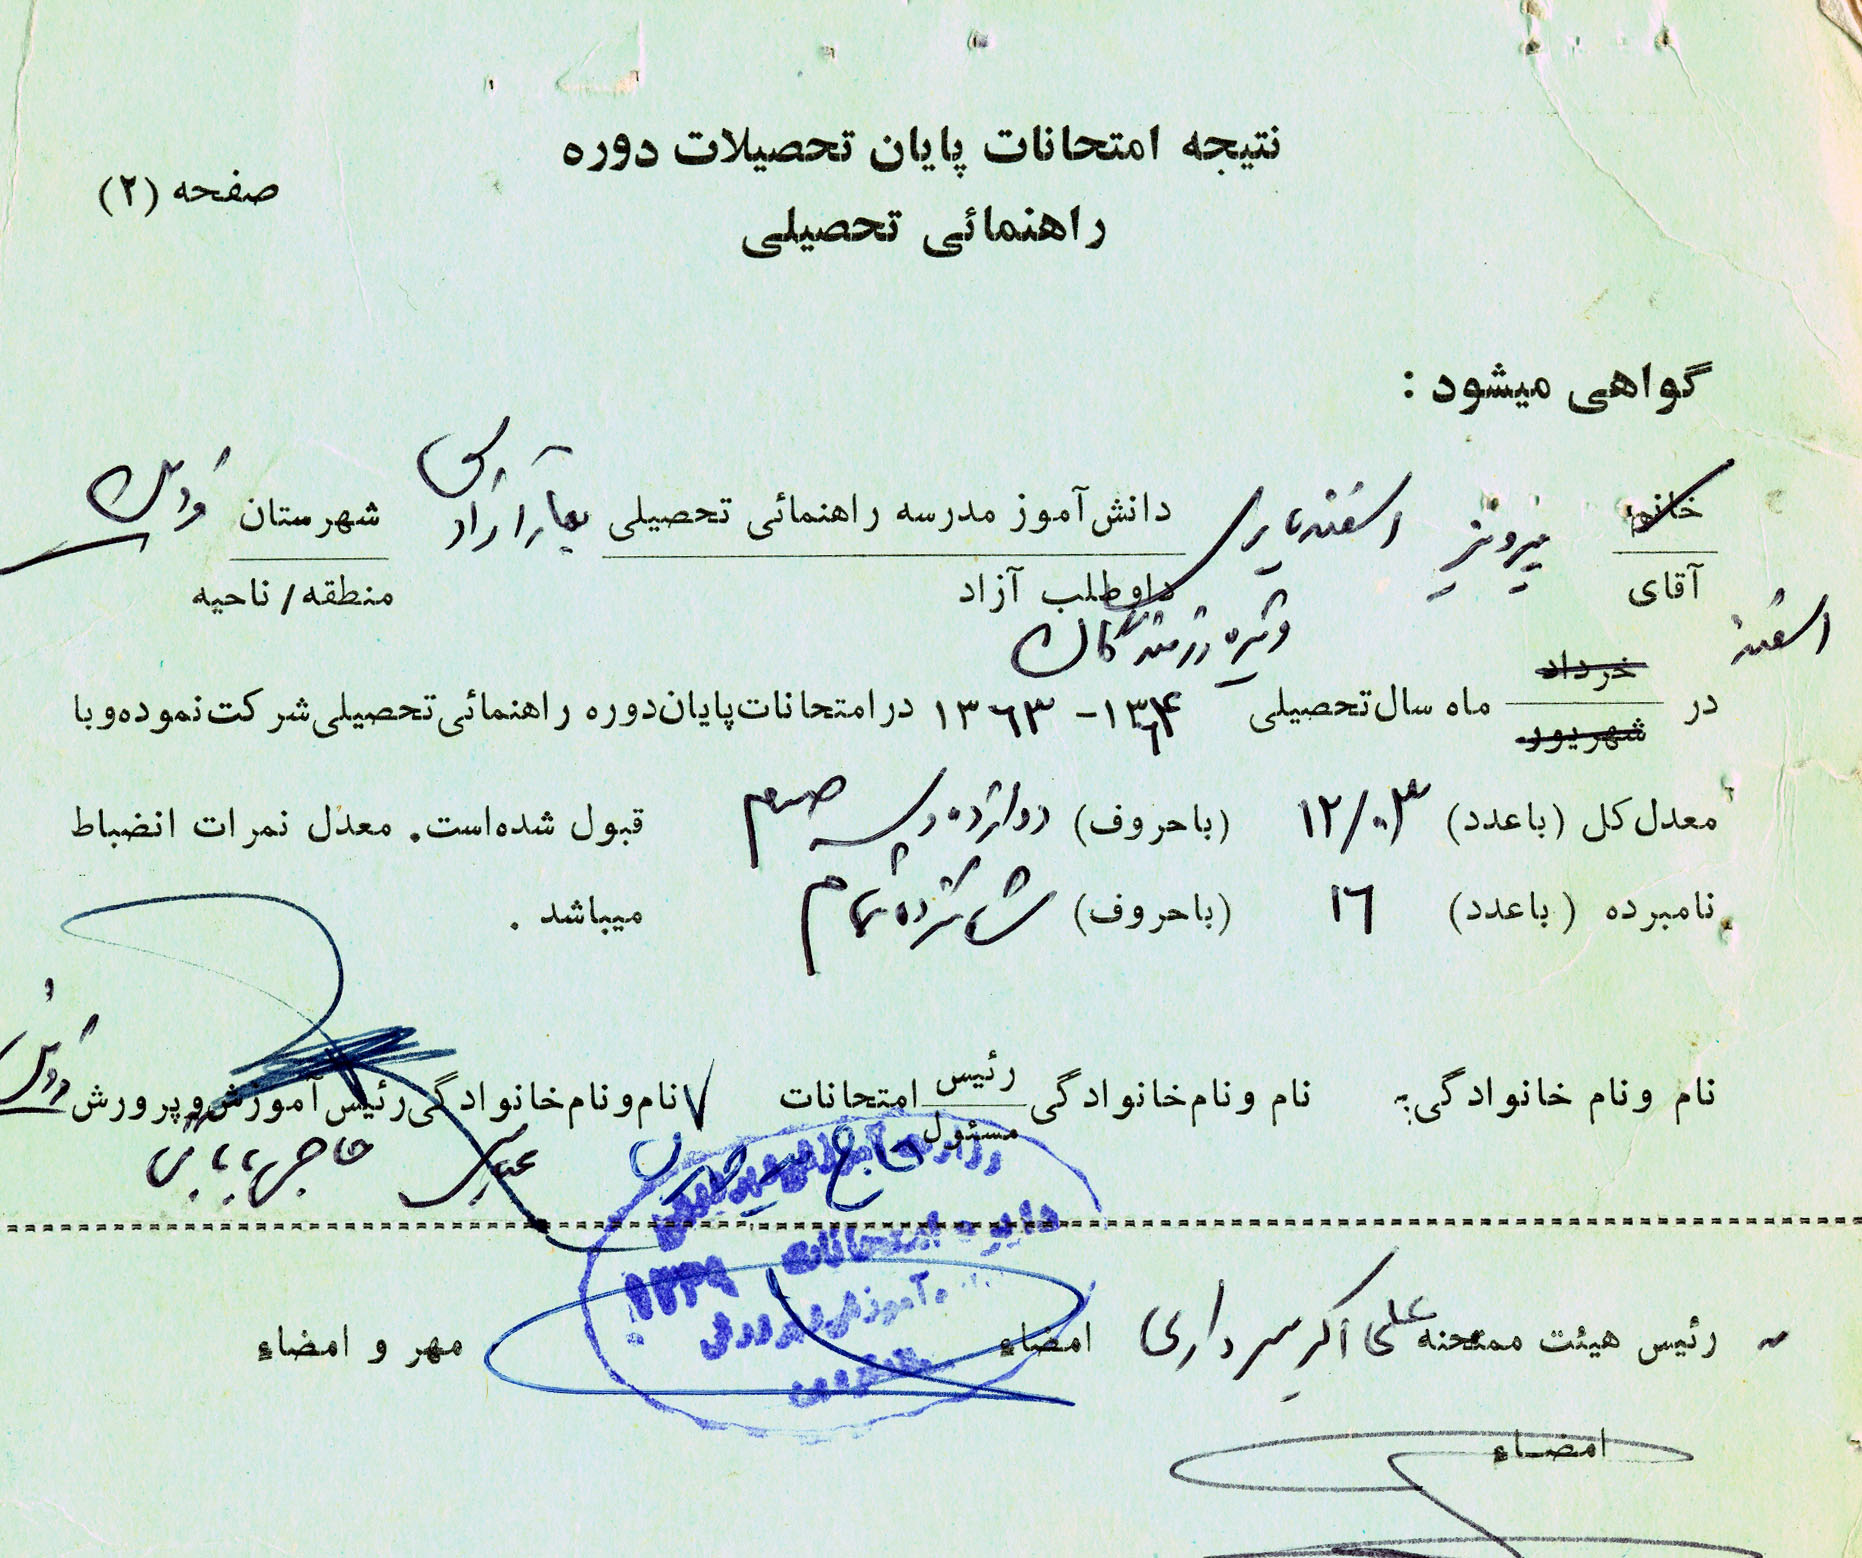 نتیجه امتحانات پایان تحصیلات دوره
راهنمائی تحصیلی
صفحه (۲)
گواهی میشود :
خانم
آقای
اسفندیاری
دانش‌آموز مدرسه راهنمائی تحصیلی
داوطلب آزاد
شهرستان
منطقه/ ناحیه
ویژه رزمندگان
اسفند
در خرداد
شهریور
ماه سال تحصیلی ۱۳۶۴ - ۱۳۶۳ در امتحانات پایان دوره راهنمائی تحصیلی شرکت نموده و با
معدل کل (باعدد) ۱۲/۰۳ (باحروف) دوازده و سه صدم قبول شده‌است. معدل نمرات انضباط
نامبرده (باعدد) ۱۶ (باحروف) شانزده تمام میباشد .
نام و نام خانوادگی نام و نام خانوادگی رئیس امتحانات نام و نام خانوادگی رئیس آموزش و پرورش
مسئول
عباس حاجی بابائی
دایره امتحانات
رئیس هیئت ممتحنه علی اکبر سرداری امضاء مهر و امضاء
امضاء